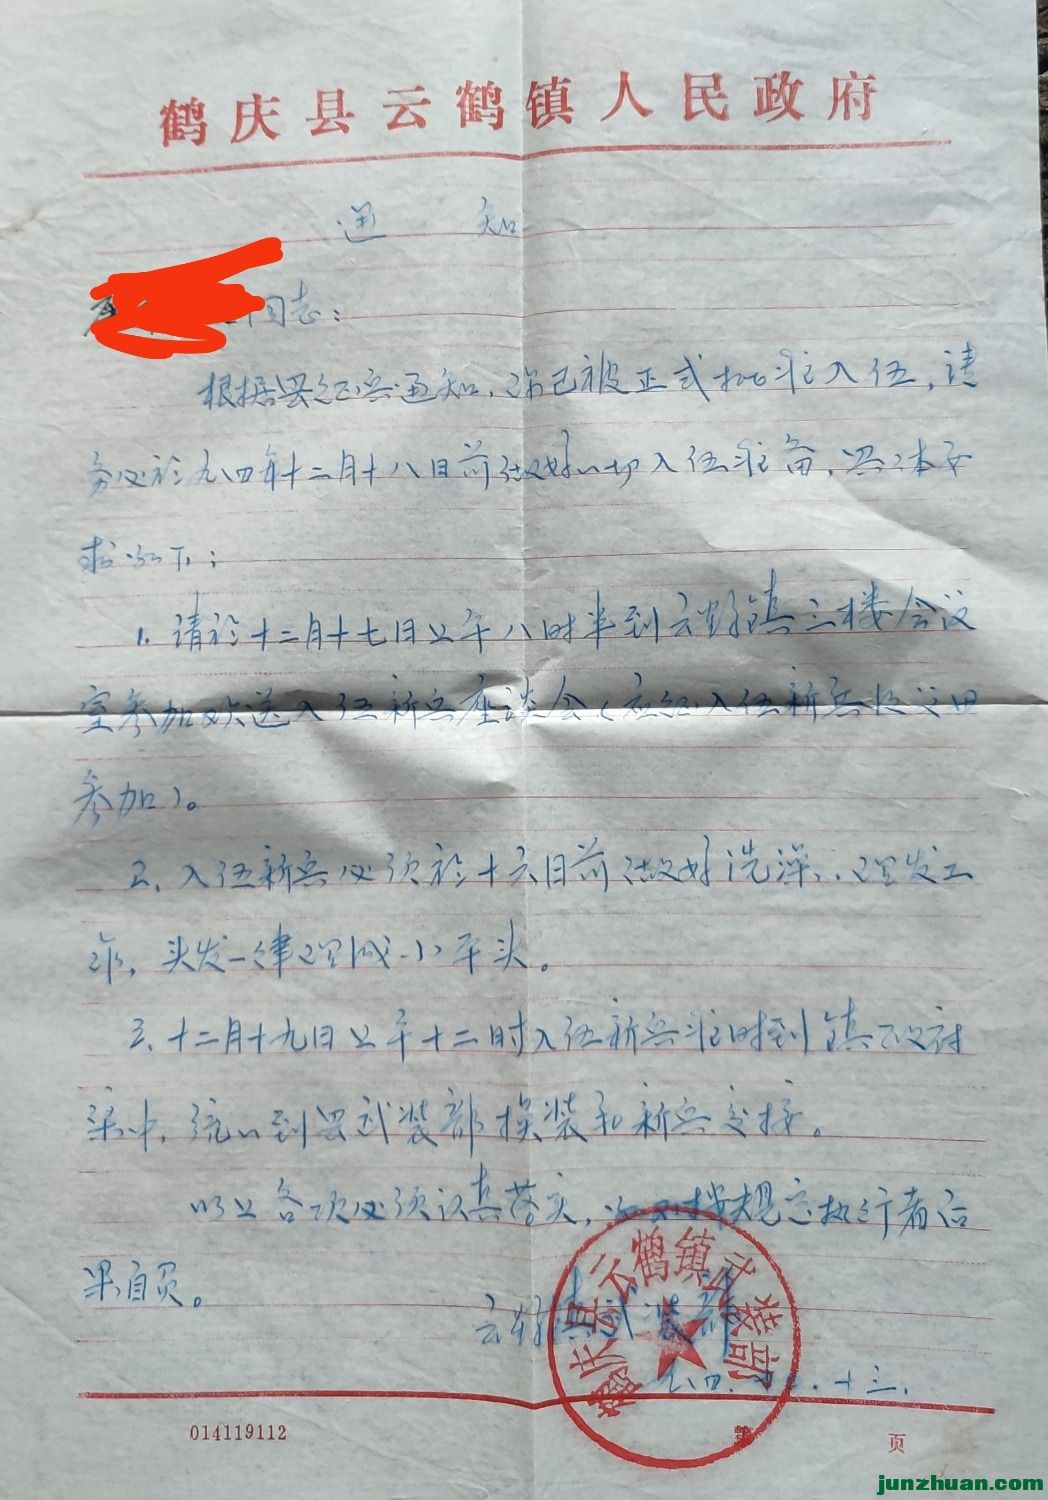 鹤庆县云鹤镇人民政府
通 知
同志：
根据县征兵通知，你已被正式批准入伍，请
务必於九四年十二月十八日前做好一切入伍准备，具体要
求如下：
1. 请於十二月十七日上午八时半到云鹤镇三楼会议
室参加欢送入伍新兵座谈会（应征入伍新兵及父母
参加）。
2、入伍新兵必须於十六日前做好洗澡、理发工
作，头发一律理成小平头。
3、十二月十九日上午十二时入伍新兵准时到镇政府
集中，统一到县武装部换装和新兵交接。
以上各项必须认真落实，如不按规定执行者后
果自负。
云鹤镇武装部
九四.十二.十三.
鹤庆县云鹤镇武装部
014119112
第 页
junzhuan.com